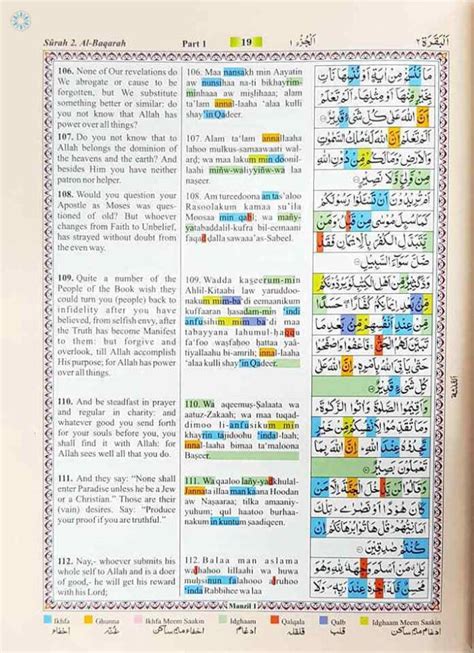 Sûrah 2. Al-Baqarah
Part 1
19
اَلْجُزْءُ ١
اَلْبَقَرَة ٢
106. None of Our revelations do
We abrogate or cause to be
forgotten, but We substitute
something better or similar: do
you not know that Allah has
power over all things?
107. Do you not know that to
Allah belongs the dominion of
the heavens and the earth? And
besides Him you have neither
patron nor helper.
108. Would you question your
Apostle as Moses was ques-
tioned of old? But whoever
changes from Faith to Unbelief,
has strayed without doubt from
the even way.
109. Quite a number of the
People of the Book wish they
could turn you (people) back to
infidelity after you have
believed, from selfish envy, after
the Truth has become Manifest
to them: but forgive and
overlook, till Allah accomplish
His purpose; for Allah has power
over all things.
110. And be steadfast in prayer
and regular in charity: and
whatever good you send forth
for your souls before you, you
shall find it with Allah: for
Allah sees well all that you do.
111. And they say: "None shall
enter Paradise unless he be a Jew
or a Christian." Those are their
(vain) desires. Say: "Produce
your proof if you are truthful."
112. Nay,- whoever submits his
whole self to Allah and is a doer
of good,- he will get his reward
with his Lord;
106. Maa nansakh min Aayatin
aw nunsihaa na-ti bikhayrim-
minhaaa aw mislihaaa; alam
ta'lam annal-laaha 'alaa kulli
shay'in Qadeer.
107. Alam ta'lam annallaaha
lahoo mulkus-samaawaati wal-
ard; wa maa lakum min doonil-
laahi miñw-waliyyiñw-wa laa
naseer.
108. Am tureedoona an tas'aloo
Rasoolakum kamaa su'ila
Moosaa min qabl; wa mañy-
yatabaddalil-kufra bil-eemaani
faqad dalla sawaaa'as-Sabeel.
109. Wadda kaseerum-min
Ahlil-Kitaabi law yaruddoo-
nakum mim-ba'di eemaanikum
kuffaaran hasadam-min 'indi
anfusihim mim ba'di maa
tabayyana lahumul-haqqu
fa'foo wasfahoo hattaa yaa-
tiyallaahu bi-amrih; innal-laaha
'alaa kulli shay'in Qadeer.
110. Wa aqeemuṣ-Ṣalaata wa
aatuz-Zakaah; wa maa tuqad-
dimoo li-anfusikum min
khayrin tajidoohu 'indal-laah;
innal-laaha bimaa ta'maloona
Baṣeer.
111. Wa qaaloo lañy-yadkhulal-
Jannata illaa man kaana Hoodan
aw Naṣaaraa; tilka amaaniy-
yuhum; qul haatoo burhaa-
nakum in kuntum saadiqeen.
112. Balaa man aslama
wajhahoo lillaahi wa huwa
muhsinun falahooo ajruhoo
'inda Rabbihee wa laa
مَا نَنْسَخْ مِنْ اٰيَةٍ اَوْ نُنْسِهَا نَاْتِ
بِخَيْرٍ مِّنْهَاۤ اَوْ مِثْلِهَا اَلَمْ تَعْلَمْ
اَنَّ اللّٰهَ عَلٰى كُلِّ شَيْءٍ قَدِيْرٌ
اَلَمْ تَعْلَمْ اَنَّ اللّٰهَ لَهٗ مُلْكُ السَّمٰوٰتِ
وَالْاَرْضِ وَمَا لَكُمْ مِّنْ دُوْنِ اللّٰهِ
مِنْ وَّلِيٍّ وَّلَا نَصِيْرٍ
اَمْ تُرِيْدُوْنَ اَنْ تَسْـَٔلُوْا رَسُوْلَكُمْ
كَمَا سُئِلَ مُوْسٰى مِنْ قَبْلُ وَمَنْ
يَّتَبَدَّلِ الْكُفْرَ بِالْاِيْمَانِ فَقَدْ
ضَلَّ سَوَآءَ السَّبِيْلِ
وَدَّ كَثِيْرٌ مِّنْ اَهْلِ الْكِتٰبِ لَوْ يَرُدُّوْنَكُمْ
مِّنْ بَعْدِ اِيْمَانِكُمْ كُفَّارًا حَسَدًا
مِّنْ عِنْدِ اَنْفُسِهِمْ مِّنْ بَعْدِ مَا
تَبَيَّنَ لَهُمُ الْحَقُّ فَاعْفُوْا وَاصْفَحُوْا
حَتّٰى يَاْتِيَ اللّٰهُ بِاَمْرِهٖ اِنَّ اللّٰهَ عَلٰى
كُلِّ شَيْءٍ قَدِيْرٌ
وَاَقِيْمُوا الصَّلٰوةَ وَاٰتُوا الزَّكٰوةَ
وَمَا تُقَدِّمُوْا لِاَنْفُسِكُمْ مِّنْ خَيْرٍ
تَجِدُوْهُ عِنْدَ اللّٰهِ اِنَّ اللّٰهَ بِمَا
تَعْمَلُوْنَ بَصِيْرٌ
وَقَالُوْا لَنْ يَّدْخُلَ الْجَنَّةَ اِلَّا مَنْ
كَانَ هُوْدًا اَوْ نَصٰرٰى تِلْكَ
اَمَانِيُّهُمْ قُلْ هَاتُوْا بُرْهَانَكُمْ اِنْ
كُنْتُمْ صٰدِقِيْنَ
بَلٰى مَنْ اَسْلَمَ وَجْهَهٗ لِلّٰهِ وَهُوَ
مُحْسِنٌ فَلَهٗۤ اَجْرُهٗ عِنْدَ رَبِّهٖ وَلَا
Manzil 1
Ikhfa
Ghunna
Ikhfa Meem Saakin
Idghaam
Qalqala
Qalb
Idghaam Meem Saakin
اخفاء
غنّہ
اخفاء میم ساکن
ادغام
قلقلہ
قلب
ادغام میم ساکن